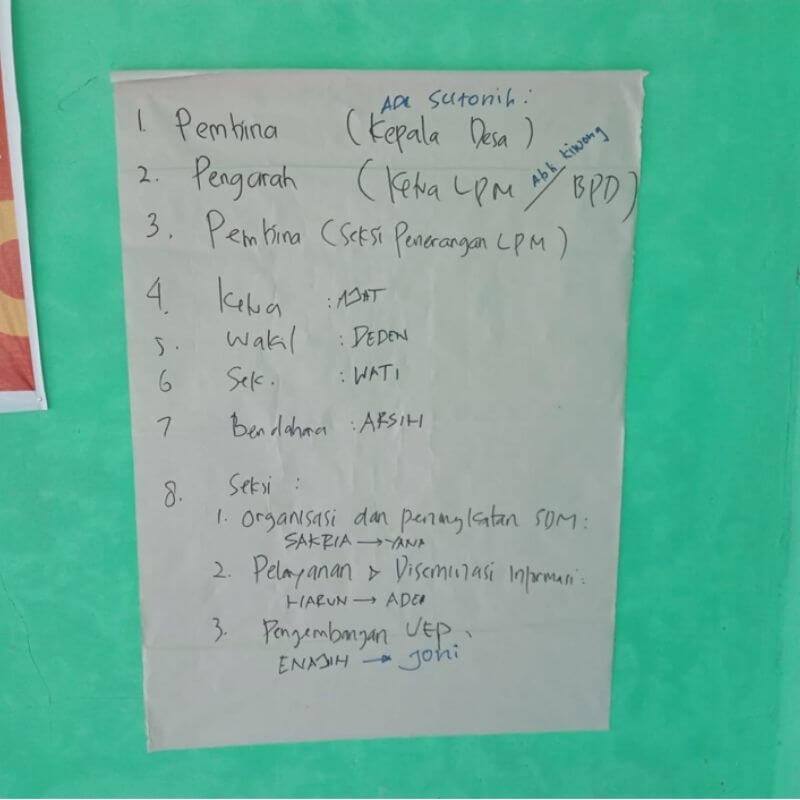 ADE Sutonih:
1. Pembina (Kepala Desa)
Abh Kiwong
2. Pengarah (Ketua LPM / BPD)
3. Pembina (Seksi Penerangan LPM)
4. Ketua : AJAT
5. Wakil : DEDEN
6 Sek. : WATI
7 Bendahara : ARSIH
8. Seksi :
1. Organisasi dan peningkatan SDM:
SAKRIA → YANA
2. Pelayanan & Diseminasi Informasi:
HARUN → ADE
3. Pengembangan UEP
ENAJIH → Joni